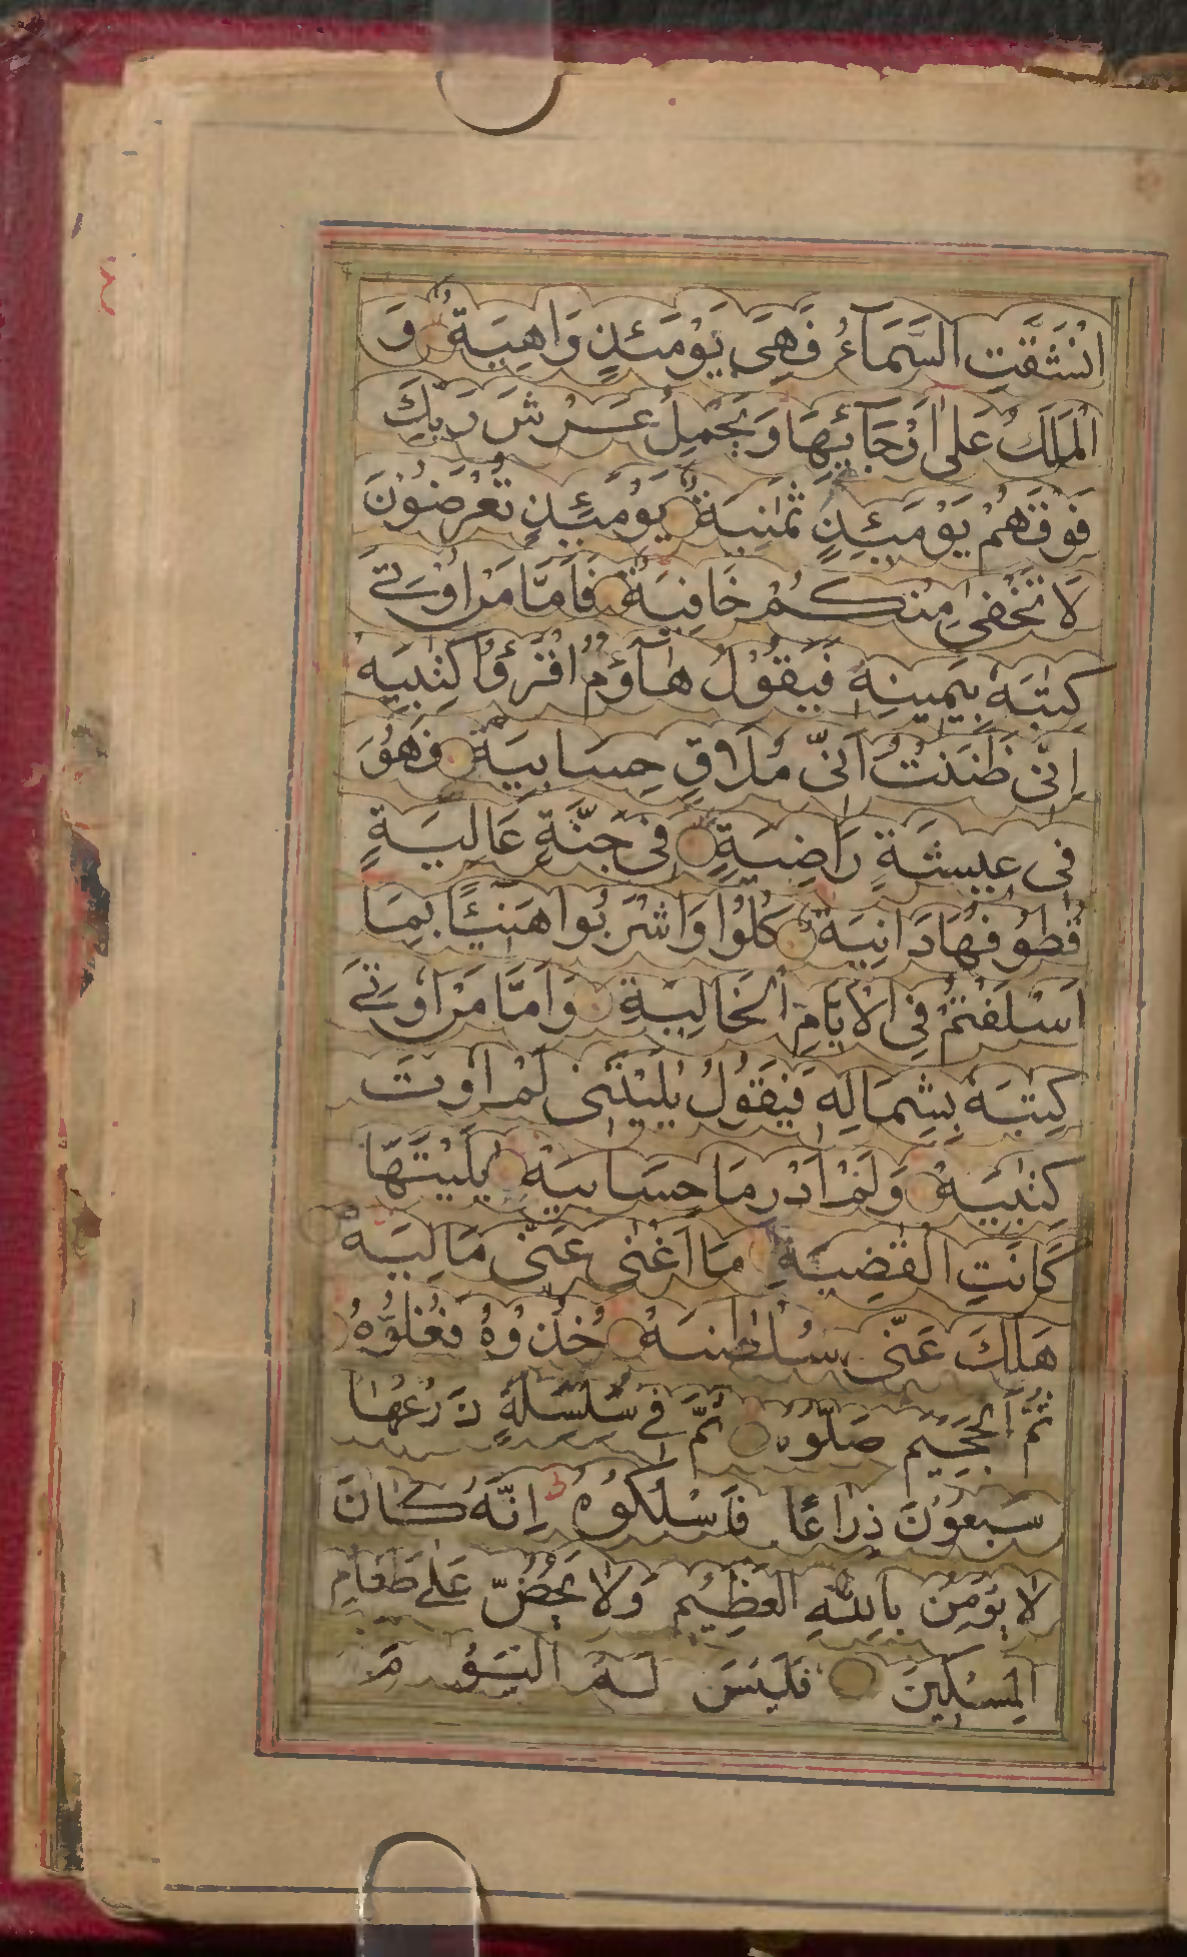 انْشَقَّتِ السَّمَآءُ فَهِيَ يَوْمَئِذٍ وَاهِيَةٌ وَ
الْمَلَكُ عَلٰى اَرْجَآئِهَا وَيَحْمِلُ عَرْشَ رَبِّكَ
فَوْقَهُمْ يَوْمَئِذٍ ثَمٰنِيَةٌ يَوْمَئِذٍ تُعْرَضُوْنَ
لَا تَخْفٰى مِنْكُمْ خَافِيَةٌ فَاَمَّا مَنْ اُوْتِيَ
كِتٰبَهٗ بِيَمِيْنِهٖ فَيَقُوْلُ هَآؤُمُ اقْرَءُوْا كِتٰبِيَهْ
اِنِّيْ ظَنَنْتُ اَنِّيْ مُلَاقٍ حِسَابِيَهْ فَهُوَ
فِيْ عِيْشَةٍ رَاضِيَةٍ فِيْ جَنَّةٍ عَالِيَةٍ
قُطُوْفُهَا دَانِيَةٌ كُلُوْا وَاشْرَبُوْا هَنِيْئًا بِمَا
اَسْلَفْتُمْ فِي الْاَيَّامِ الْخَالِيَةِ وَاَمَّا مَنْ اُوْتِيَ
كِتٰبَهٗ بِشِمَالِهٖ فَيَقُوْلُ يٰلَيْتَنِيْ لَمْ اُوْتَ
كِتٰبِيَهْ وَلَمْ اَدْرِ مَا حِسَابِيَهْ يٰلَيْتَهَا
كَانَتِ الْقٰضِيَةَ مَا اَغْنٰى عَنِّيْ مَالِيَهْ
هَلَكَ عَنِّيْ سُلْطٰنِيَهْ خُذُوْهُ فَغُلُّوْهُ
ثُمَّ الْجَحِيْمَ صَلُّوْهُ ثُمَّ فِيْ سِلْسِلَةٍ ذَرْعُهَا
سَبْعُوْنَ ذِرَاعًا فَاسْلُكُوْهُ اِنَّهٗ كَانَ
لَا يُؤْمِنُ بِاللّٰهِ الْعَظِيْمِ وَلَا يَحُضُّ عَلٰى طَعَامِ
الْمِسْكِيْنِ فَلَيْسَ لَهُ الْيَوْمَ